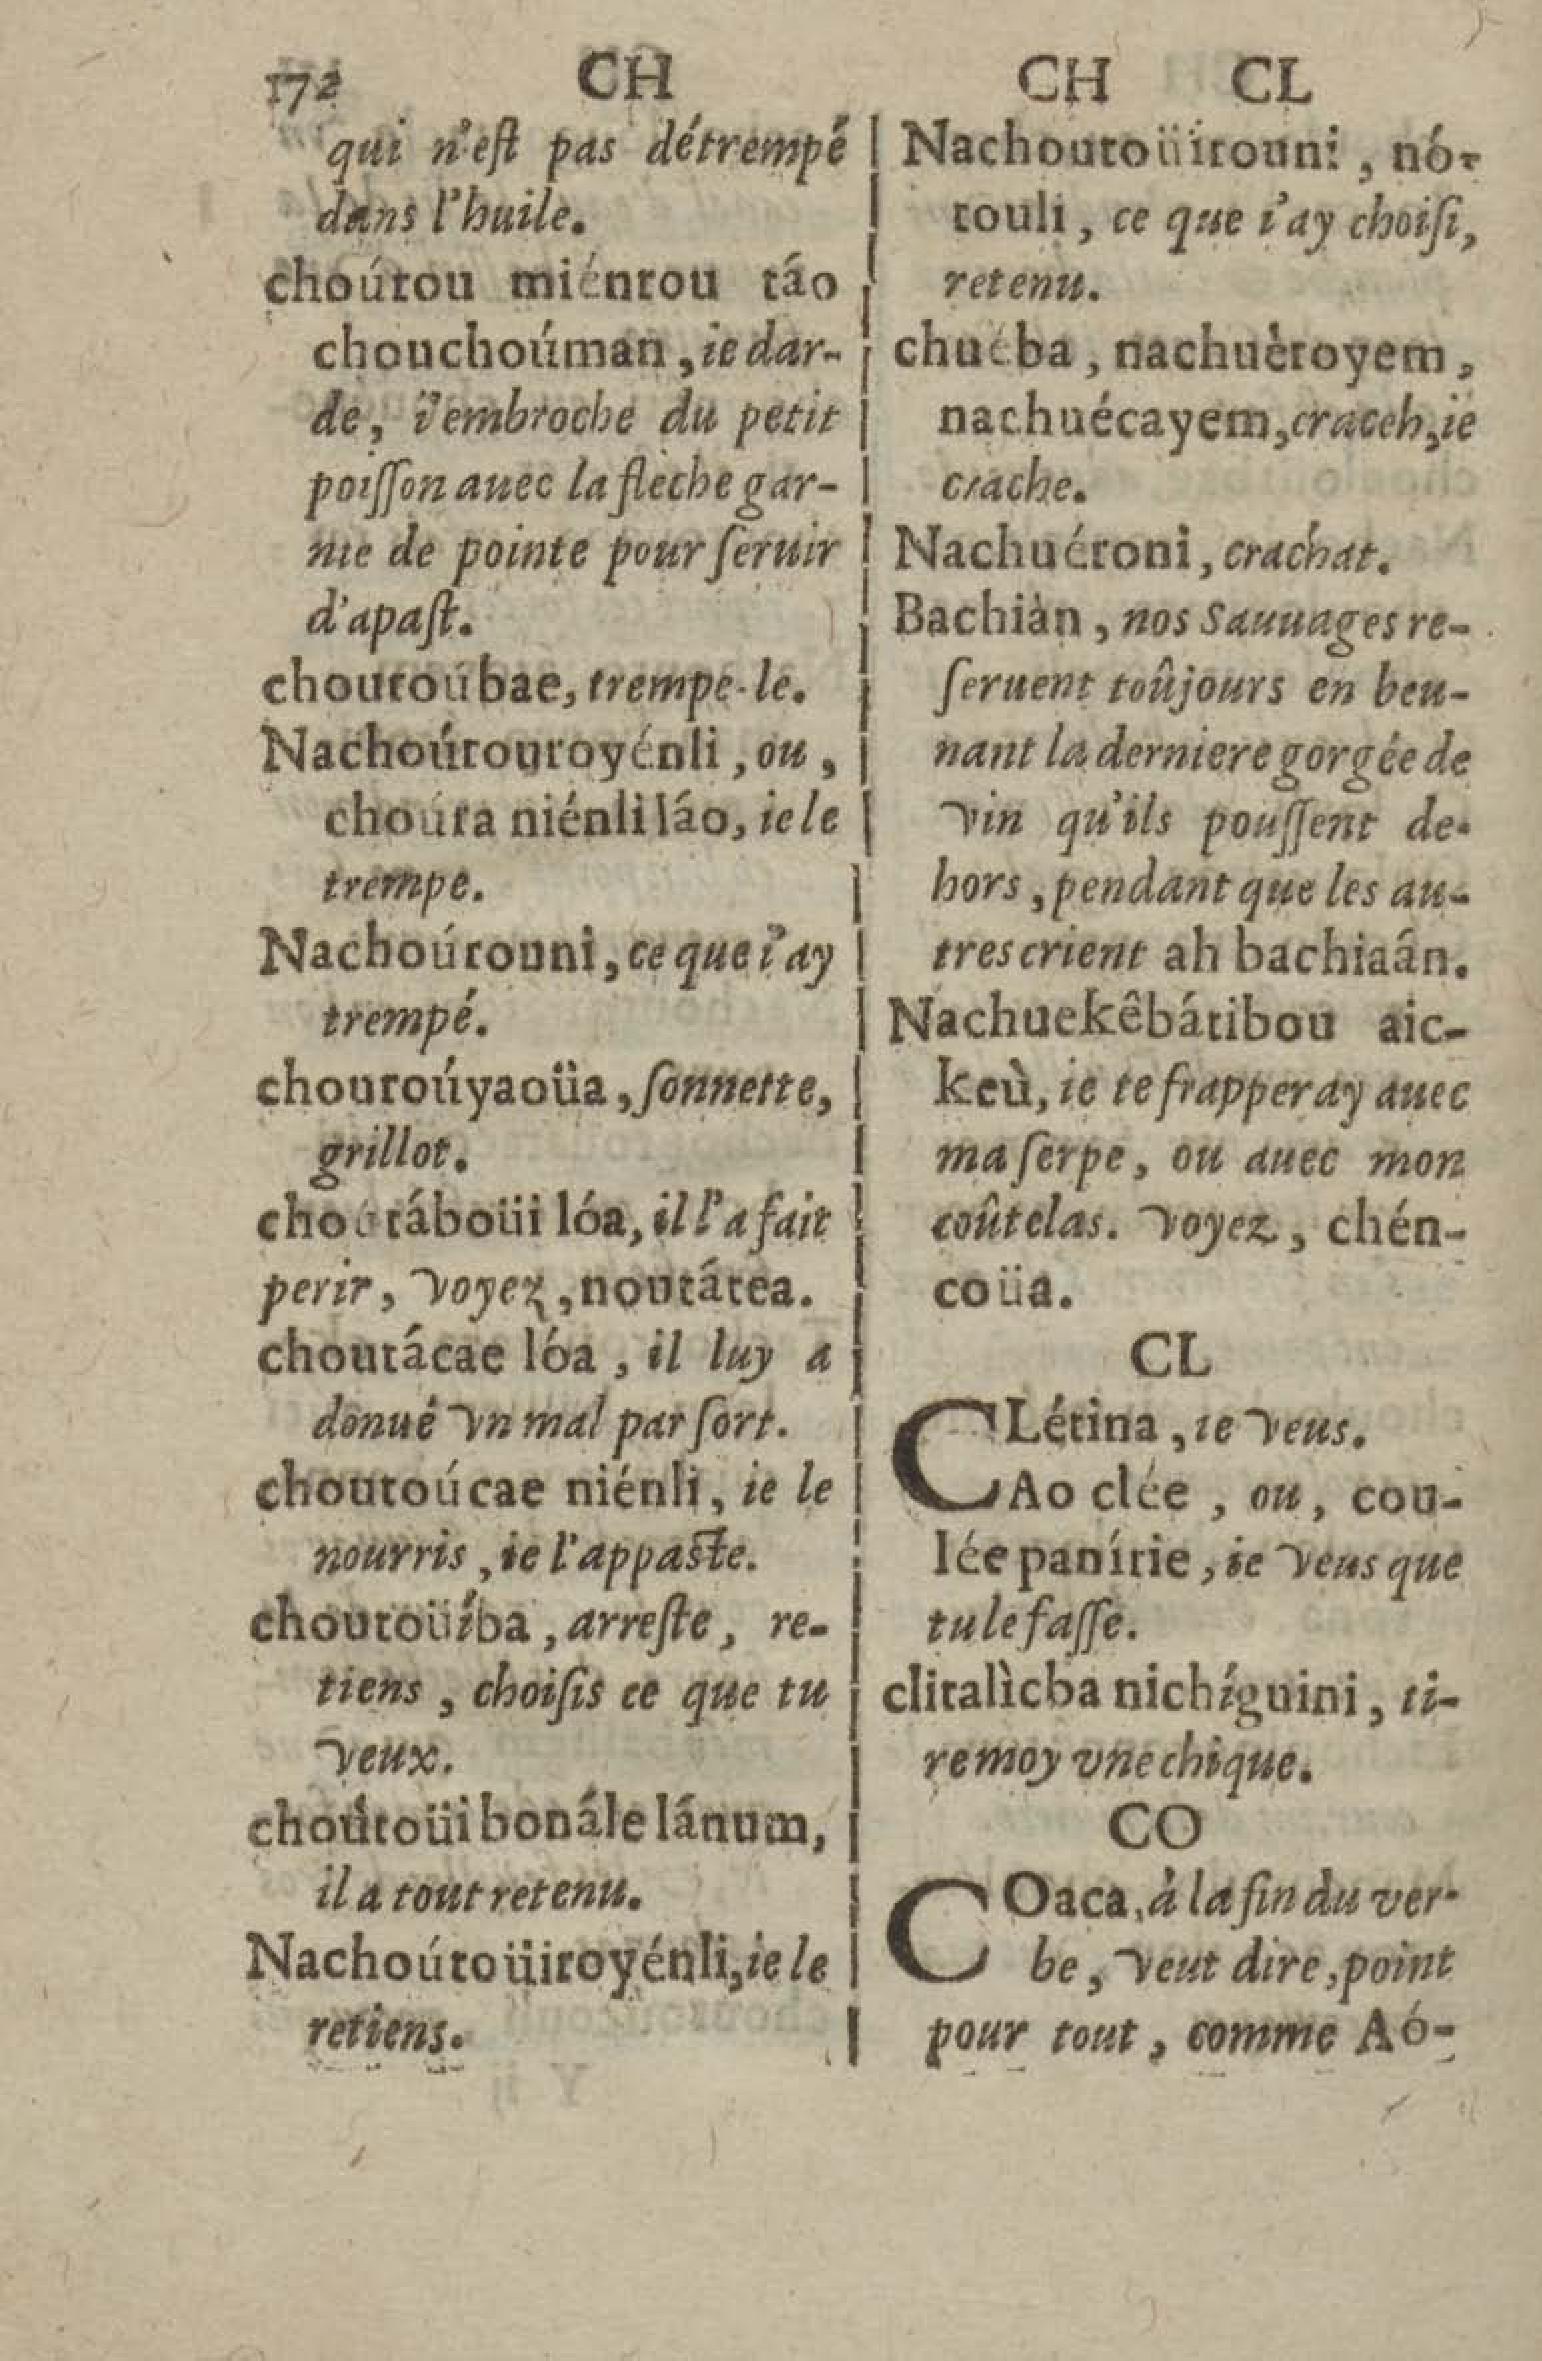 172 CH
qui n'eſt pas détrempé
dans l'huile.
choútou miéntou táo
chouchoúman, ie dar-
de, i'embroche du petit
poiſſon auec la fleche gar-
nie de pointe pour ſeruir
d'apaſt.
choutoúbae, trempe-le.
Nachoútouroyénli, ou,
choúta niénli láo, ie le
trempe.
Nachoútouni, ce que i'ay
trempé.
choutoúyaoüa, ſonnette,
grillot.
táboüi lóa, il l'a fait
perir, voyez, noutátea.
choutácae lóa, il luy a
donué vn mal par ſort.
choutoúcae niénli, ie le
nourris, ie l'appaſte.
choutoüíba, arreſte, re-
tiens, choiſis ce que tu
veux.
choútoüi bonále lánum,
il a tout retenu.
Nachoútoüiroyénli, ie le
retiens.
CH CL
Nachoutoüitouni, nó-
touli, ce que i'ay choiſi,
retenu.
chuéba, nachuèroyem,
nachuécayem, craceh, ie
crache.
Nachuéroni, crachat.
Bachiàn, nos Sauuages re-
ſeruent toûjours en beu-
nant la derniere gorgée de
vin qu'ils pouſſent de-
hors, pendant que les au-
tres crient ah bachiaân.
Nachuekêbátibou aic-
keù, ie te frapperay auec
ma ſerpe, ou auec mon
coûtelas. voyez, chén-
coüa.
CL
CLétina, ie veus.
Ao clée, ou, cou-
lée panírie, ie veus que
tu le faſſe.
clitalìcba nichíguini, ti-
re moy vne chique.
CO
COaca, à la fin du ver-
be, veut dire, point
pour tout, comme Aó-